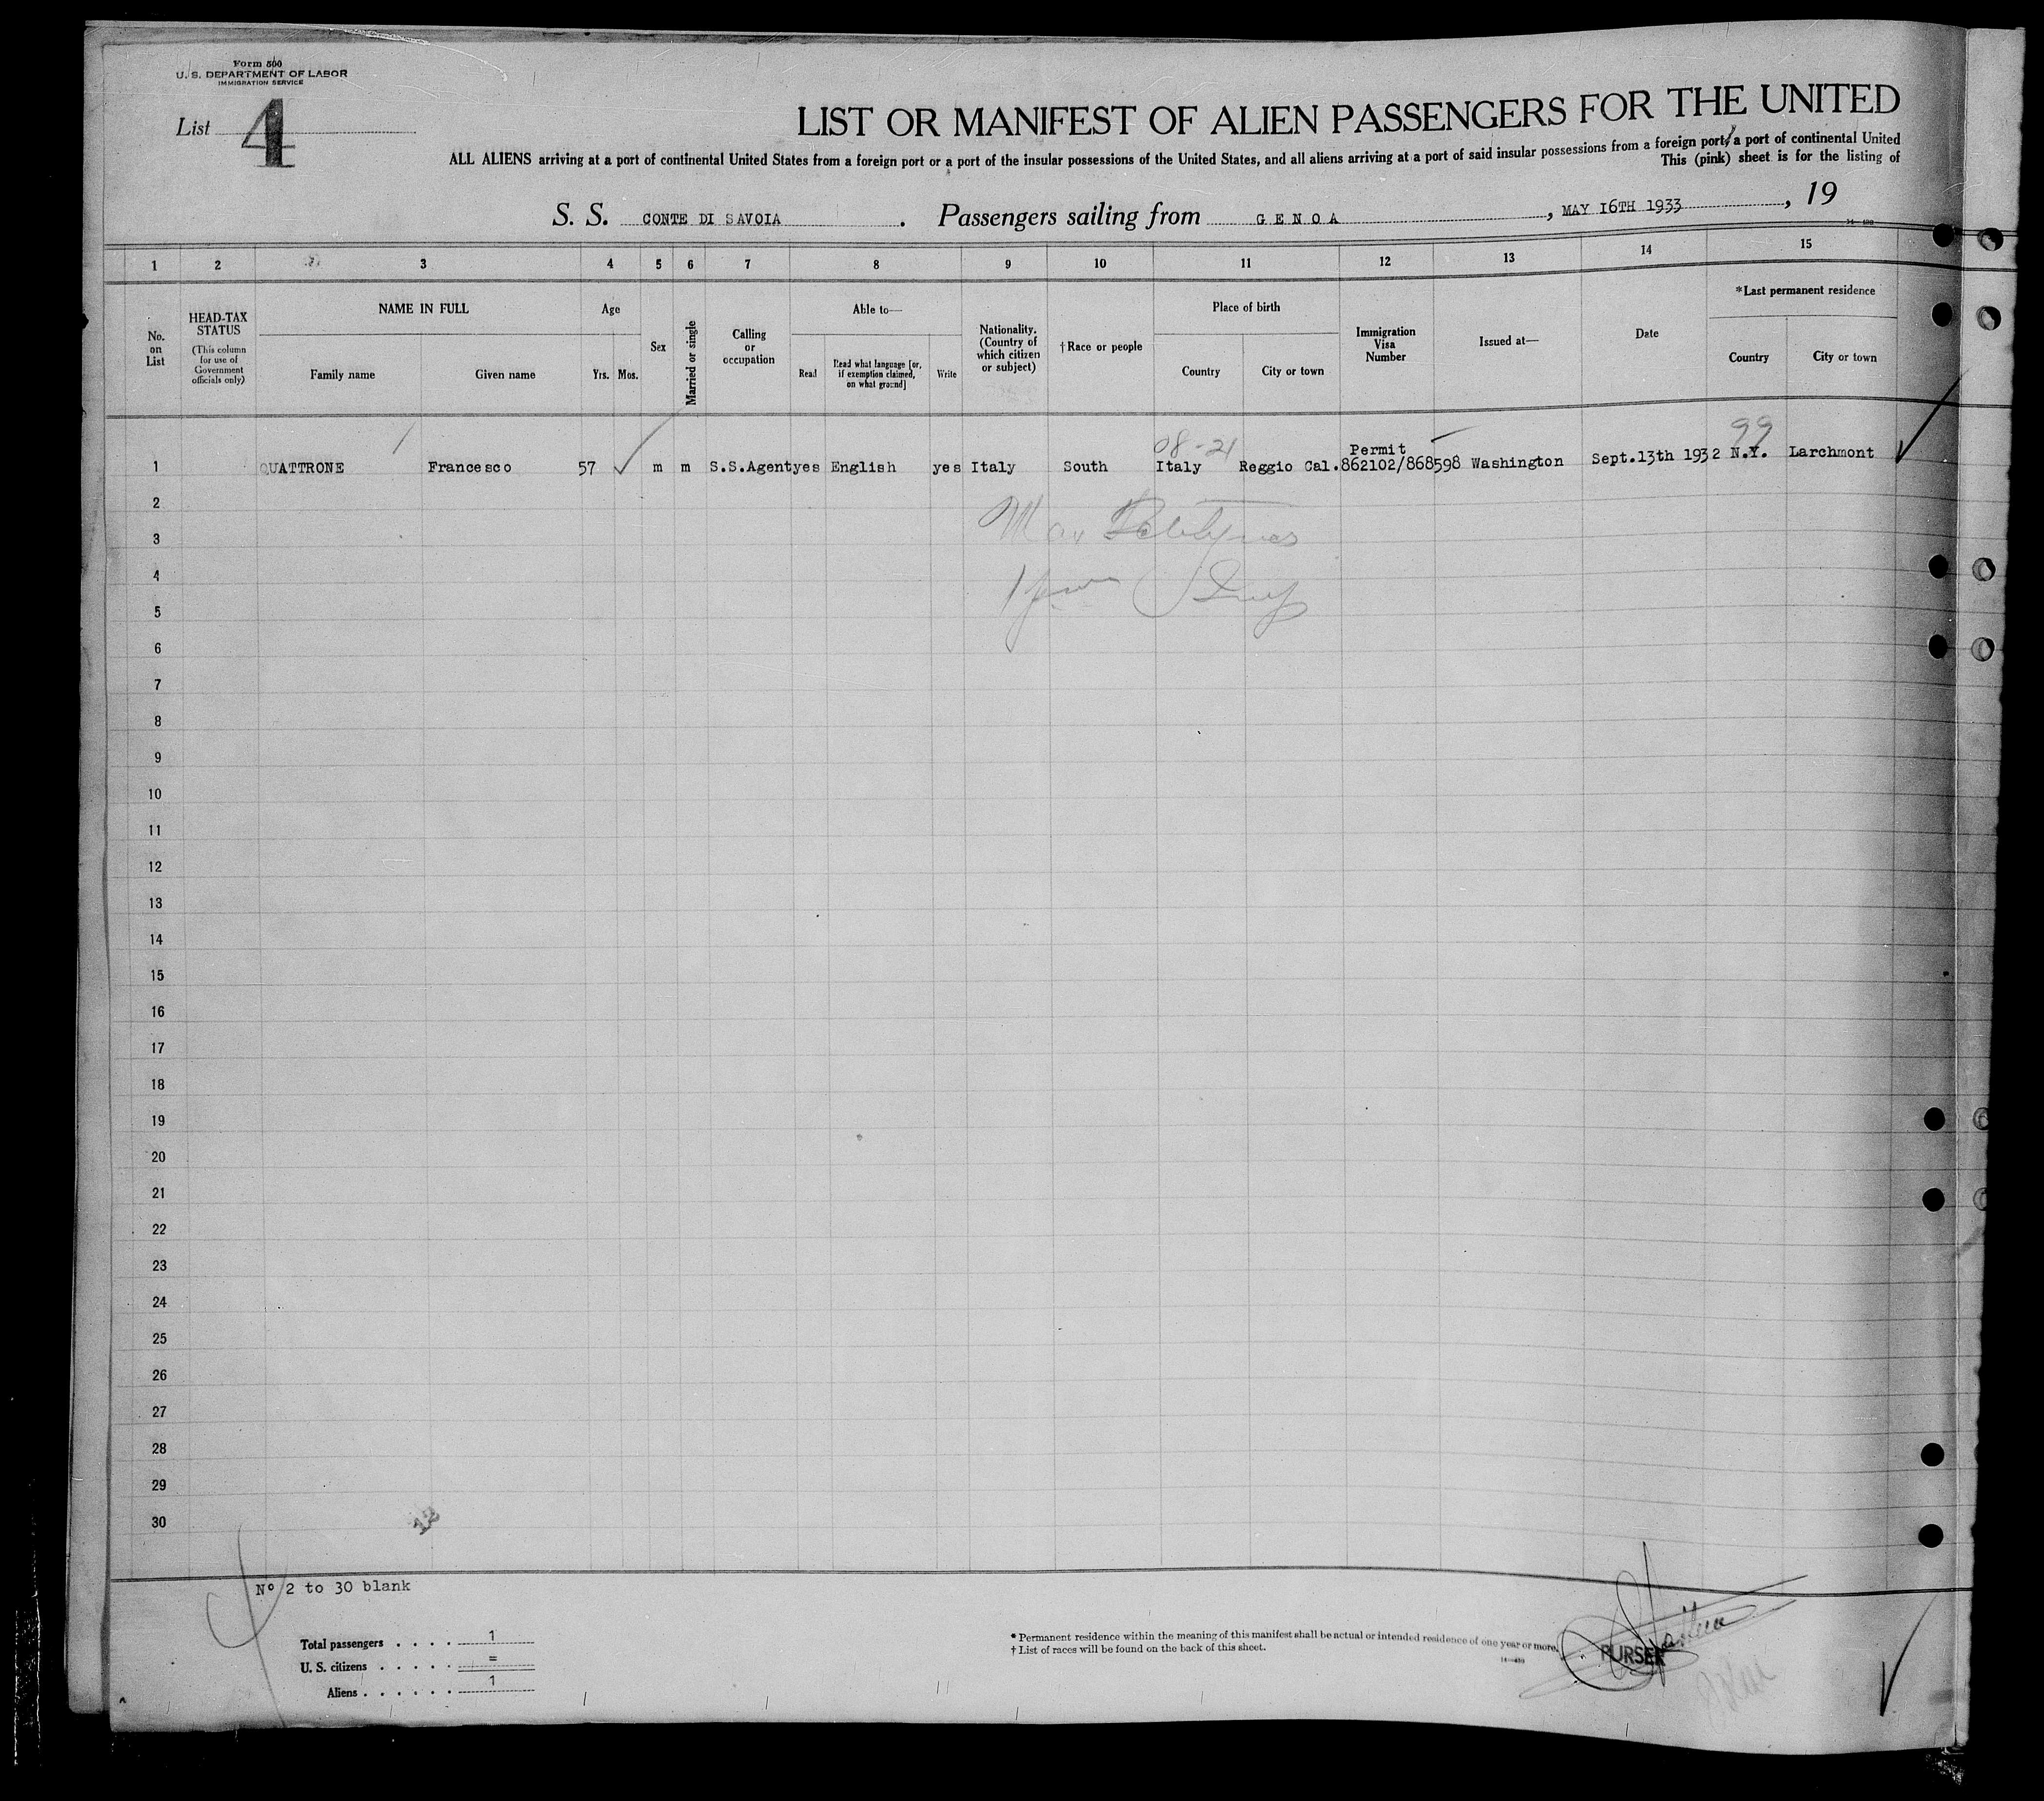 Form 500
U. S. DEPARTMENT OF LABOR
IMMIGRATION SERVICE
List 4
LIST OR MANIFEST OF ALIEN PASSENGERS FOR THE UNITED
ALL ALIENS arriving at a port of continental United States from a foreign port or a port of the insular possessions of the United States, and all aliens arriving at a port of said insular possessions from a foreign port, a port of continental United
This (pink) sheet is for the listing of
S. S. CONTE DI SAVOIA . Passengers sailing from GENOA , MAY 16TH 1933 , 19
1 2 3 4 5 6 7 8 9 10 11 12 13 14 15
No. on List
HEAD-TAX STATUS
(This column for use of Government officials only)
NAME IN FULL
Family name Given name
Age
Yrs. Mos.
Sex
Married or single
Calling or occupation
Able to—
Read Read what language [or, if exemption claimed, on what ground] Write
Nationality. (Country of which citizen or subject)
†Race or people
Place of birth
Country City or town
Immigration Visa Number
Issued at—
Date
*Last permanent residence
Country City or town
08-21 99
Permit
1 QUATTRONE Francesco 57 m m S.S.Agent yes English yes Italy South Italy Reggio Cal. 862102/868598 Washington Sept.13th 1932 N.Y. Larchmont
2
3
4
5
6
7
8
9
10
11
12
13
14
15
16
17
18
19
20
21
22
23
24
25
26
27
28
29
30
Nº 2 to 30 blank
Total passengers . . . . 1
U. S. citizens . . . . . =
Aliens . . . . . . 1
* Permanent residence within the meaning of this manifest shall be actual or intended residence of one year or more.
† List of races will be found on the back of this sheet.
PURSER